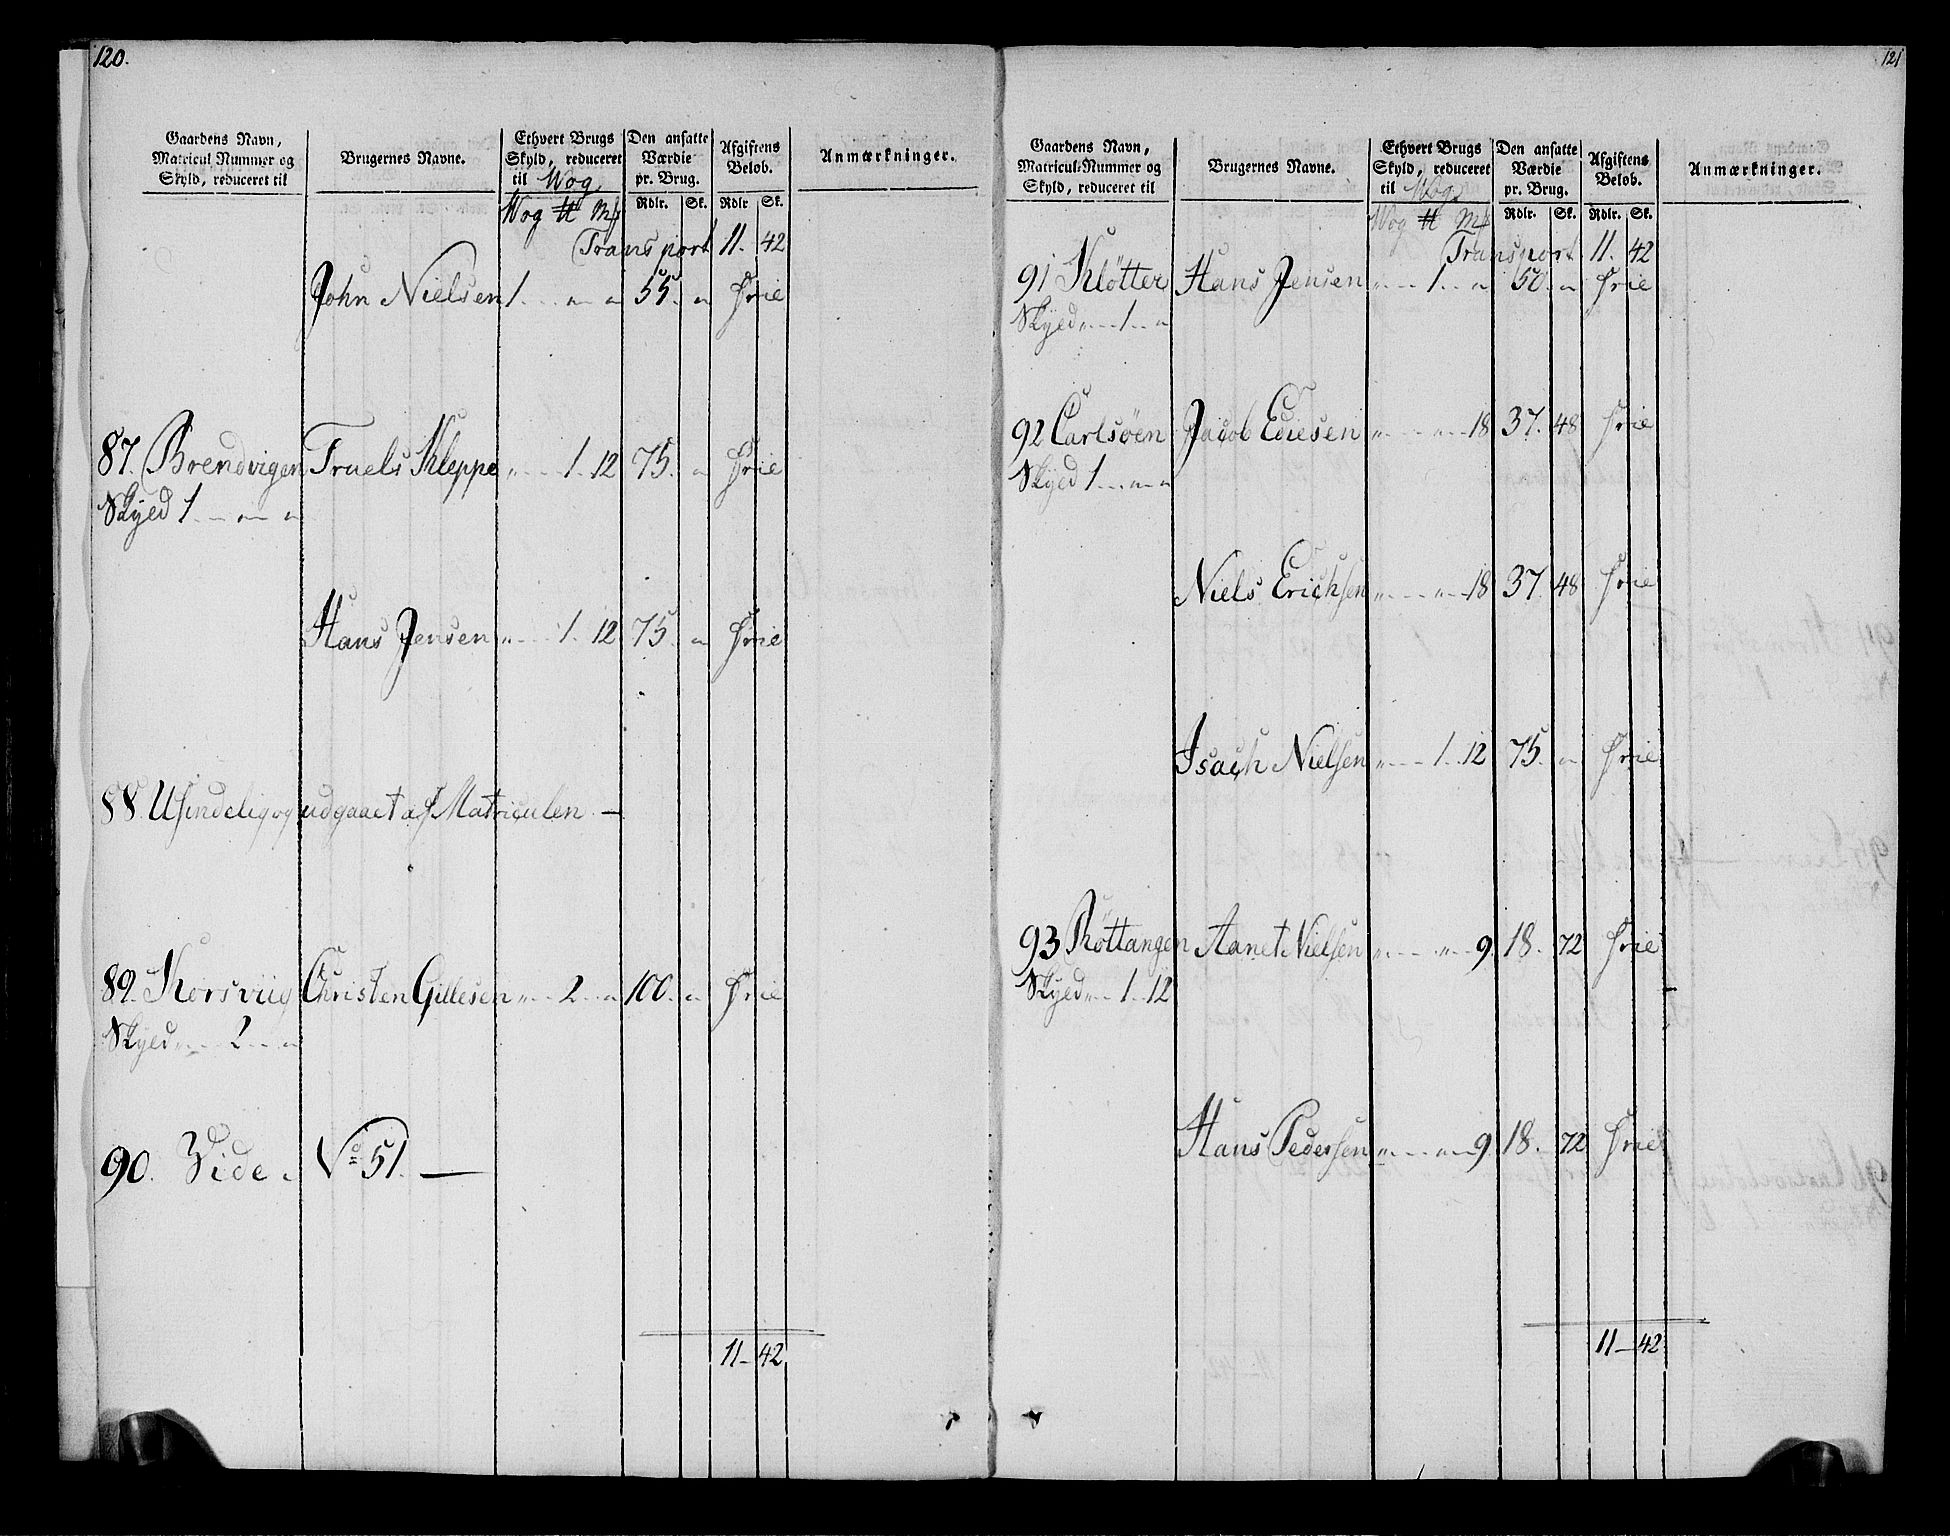 120.
Gaardens Navn, Matricul-Nummer og Skyld, reduceret til
Brugernes Navne.
Ethvert Brugs Skyld, reduceret til Wog
Den ansatte Værdie pr. Brug.
Afgiftens Beløb.
Anmærkninger.
Wog ℔ Mk Rdlr. Sk. Rdlr. Sk.
Transport 11. 42
John Nielsen 1 . . „ „ 55. „ Frie
87. Brendvigen Truels Kleppe „ . . 1. 12 75. „ Frie
Skyld 1 . . „ . „
Hans Jensen „ . . 1. 12 75. „ Frie
88. Ufindelig og udgaaet af Matriculen —
89. Korsviig Christen Gillesen „ . . 2 . . „ 100. „ Frie
Skyld „ . . 2 . . „
90. Vide. No 51. —
11 — 42
121
Gaardens Navn, Matricul-Nummer og Skyld, reduceret til
Brugernes Navne.
Ethvert Brugs Skyld, reduceret til Wog
Den ansatte Værdie pr. Brug.
Afgiftens Beløb.
Anmærkninger.
Wog ℔ Mk Rdlr. Sk. Rdlr. Sk.
Transport 11. 42
91 Kløtter Hans Jensen „ . . 1 . . „ 50. „ Frie
Skyld „ . . 1 . . „
92 Carlsøen Jacob „ . . „ . . 18 37. 48 Frie
Skyld 1 . . „ . „
Niels Erichsen „ . . „ . . 18 37. 48 Frie
Isach Nielsen „ . . 1 . . 12 75. „ Frie
93 Røttangen Aanet Nielsen „ . . „ . . 9. 18. 72 Frie
Skyld „ . . 1 . . 12
Hans Pedersen „ . . „ . . 9. 18. 72 Frie
11 — 42